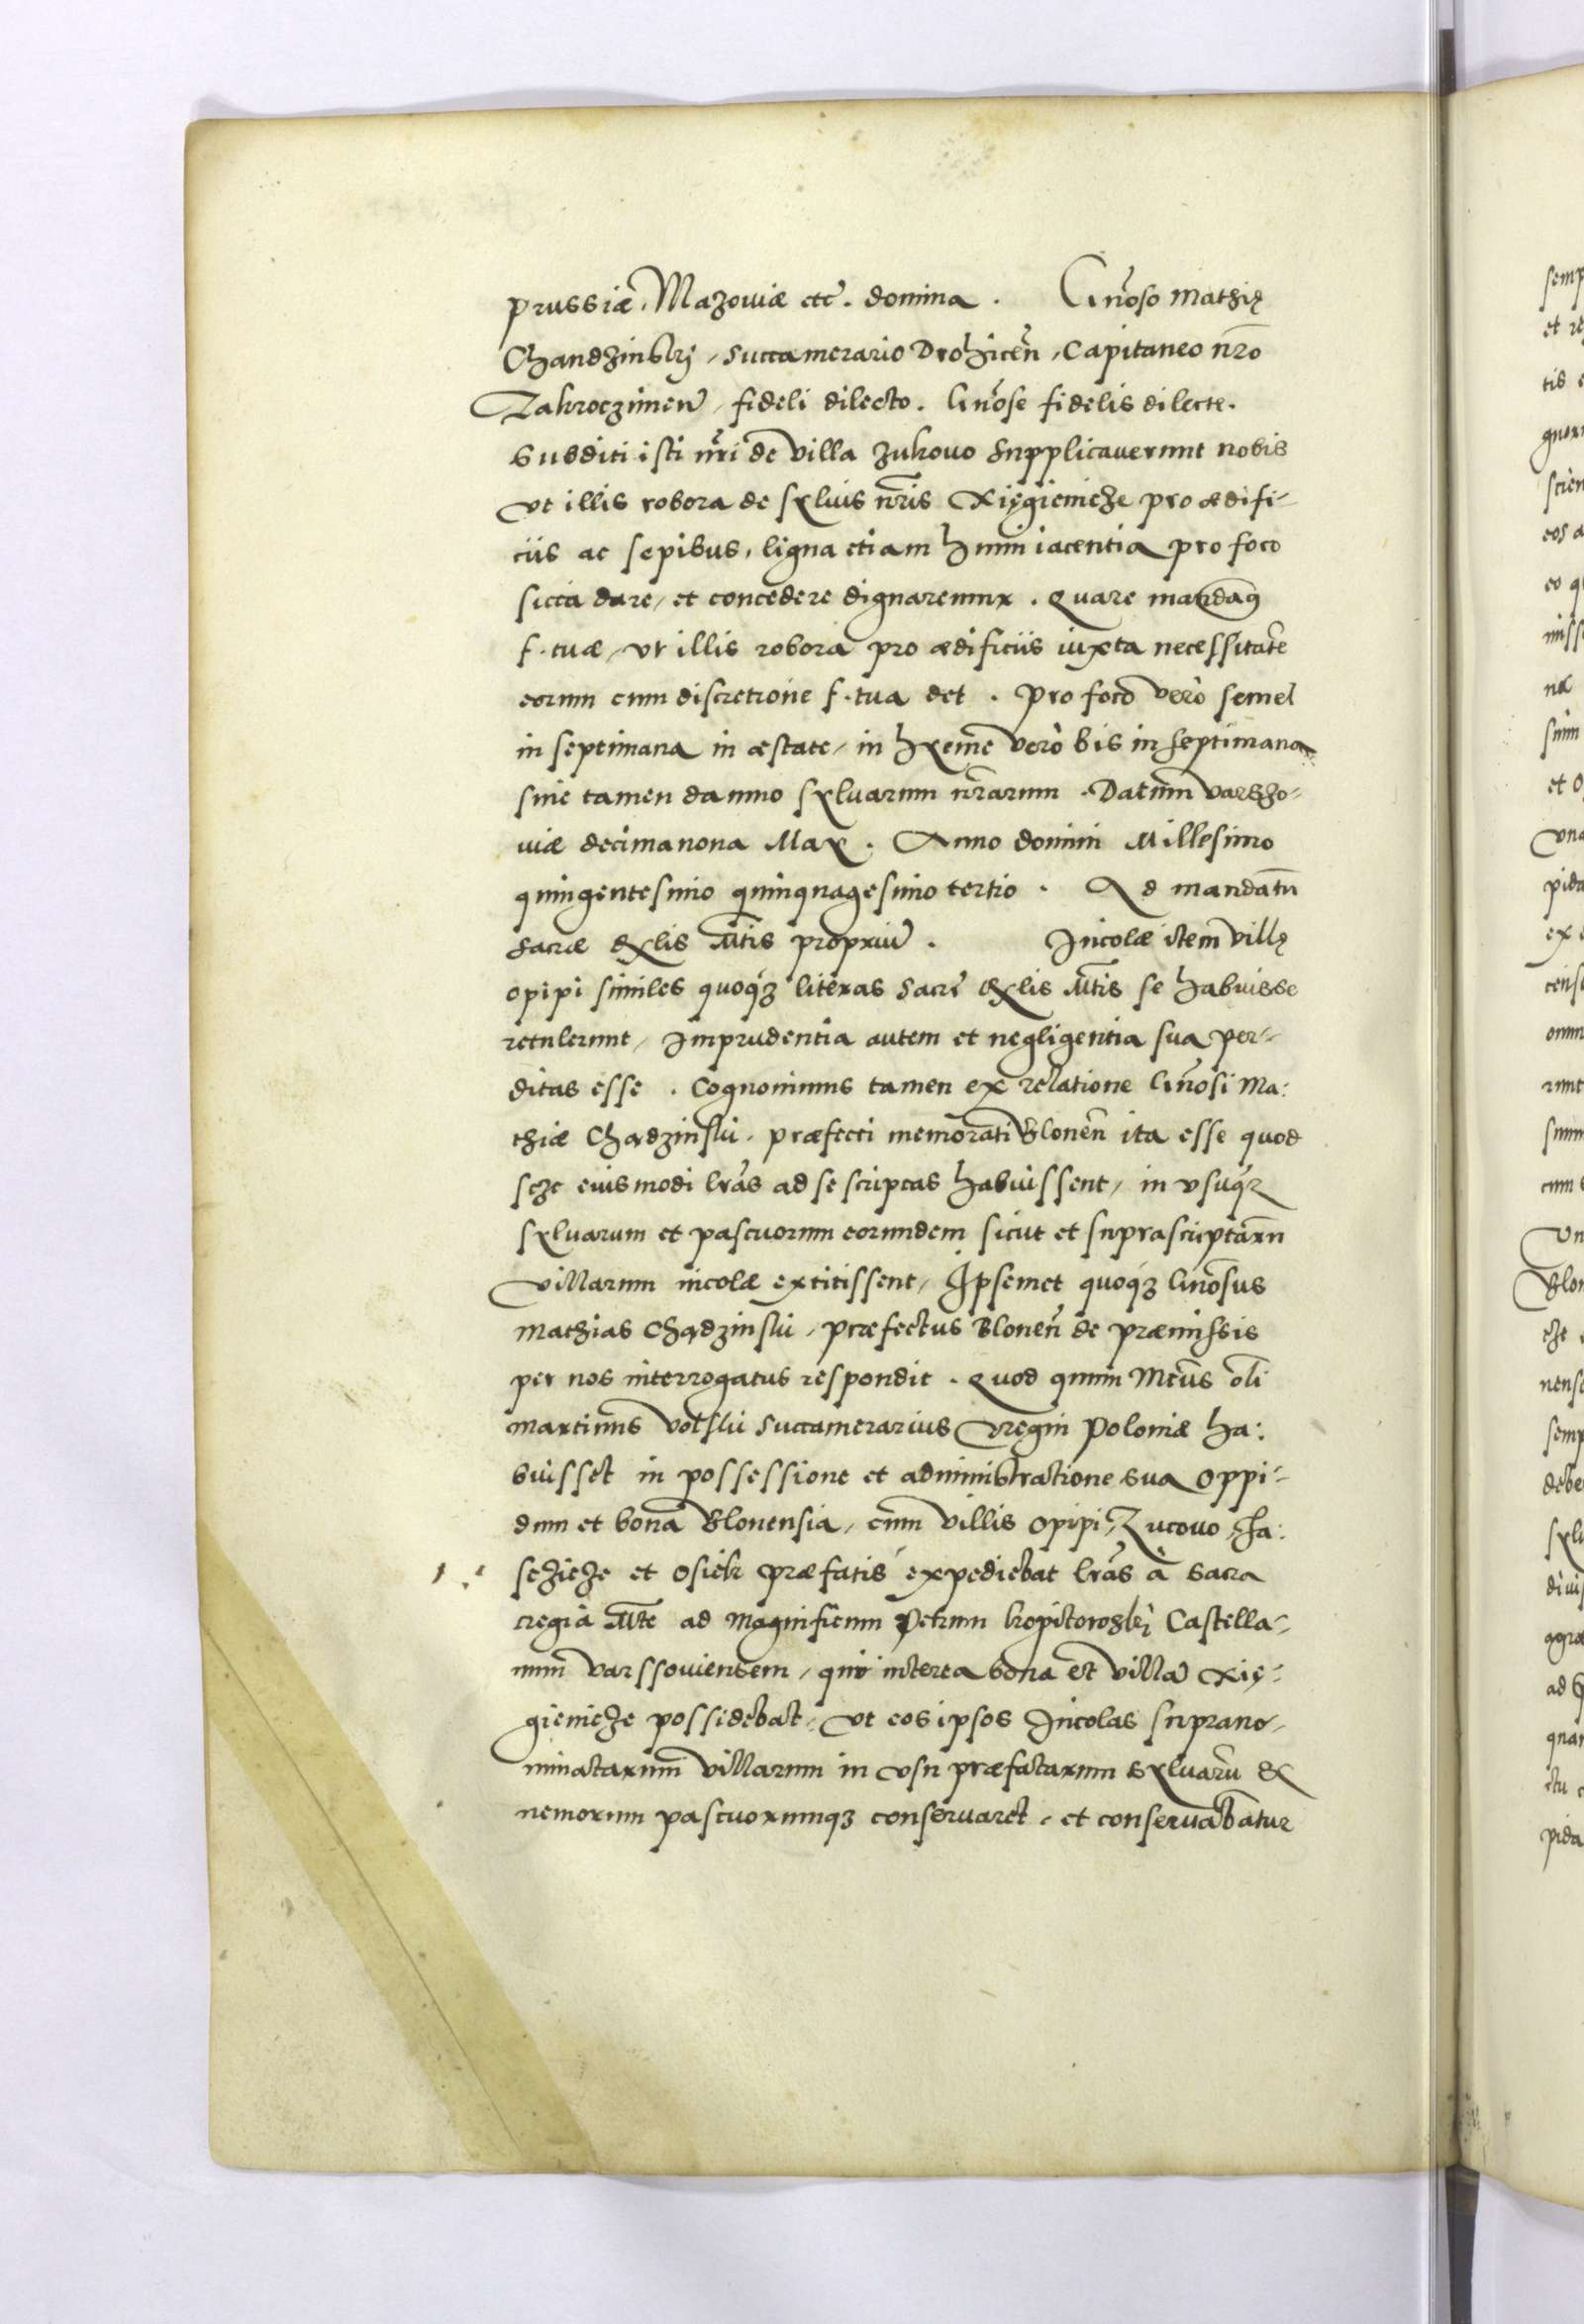 prussiæ, Mazoviæ etc̃. domina. Gñoso Mathię
Chandzinskij, succamerario Drohicẽn, Capitaneo nr̃o
Zakrocziment̃, fideli dilecto. Gñose fidelis dilecte.
Subditi isti nr̃i de villa Zukovo supplicaverunt nobis
ut illis robora de sylvis nr̃is Xięgienicze pro ædifi-
ciis ac sepibus, ligna etiam humi iacentia pro foco
sicca dare, et concedere dignaremur. Quare mandamꝰ
f. tuæ, ut illis robora pro ædificiis iuxta necessitatẽ
eorum cum discretione f. tua det. pro foco verò semel
in septimana in æstate, in hyeme verò bis in septimana
sine tamen damno sylvarum nr̃arum. Datum varsho-
viæ decimanona Maÿ. Anno domini Millesimo
quingentesimo quinquagesimo tertio. Ad mandatũ
sacræ Rx̃lis Mt̃is propriũ. Incolæ item villę
opipi similes quoqꝫ literas sacræ Rx̃lis Mt̃is se habuisse
retulerunt, Imprudentia autem et negligentia sua per-
ditas esse. Cognovimus tamen ex relatione Gñosi Ma:
thiæ Chądzinski, præfecti memorati Blonẽn ita esse quod
scze eiusmodi lr̃as ad se scriptas habuissent, in usuqꝫ
sylvarum et pascuorum eorundem sicut et suprascriptarũ
villarum incolæ extitissent, Ipsemet quoqꝫ Gñosus
Mathias Chądzinski, præfectus Blonẽn de præmissis
per nos interrogatus respondit. Quod quum Mc̃us oli
Martinus Volski succamerarius Regni Poloniæ ha:
buisset in possessione et administratione sua oppi-
dum et bona Blonensia, cum villis opipi, Zucovo, Cha:
sczicze et Osiek præfatis expediebat lr̃as à sacra
regia Mt̃e ad Magnificum Petrum kopitowskj Castella-
num varssoviensem, qui interea bona et villã Xię-
gienicze possidebat, ut eos ipsos Incolas suprano-
minatarum villarum in usu præfatarum sylvarũ &
nemorum pascuorumqꝫ conservaret, et conservabatur